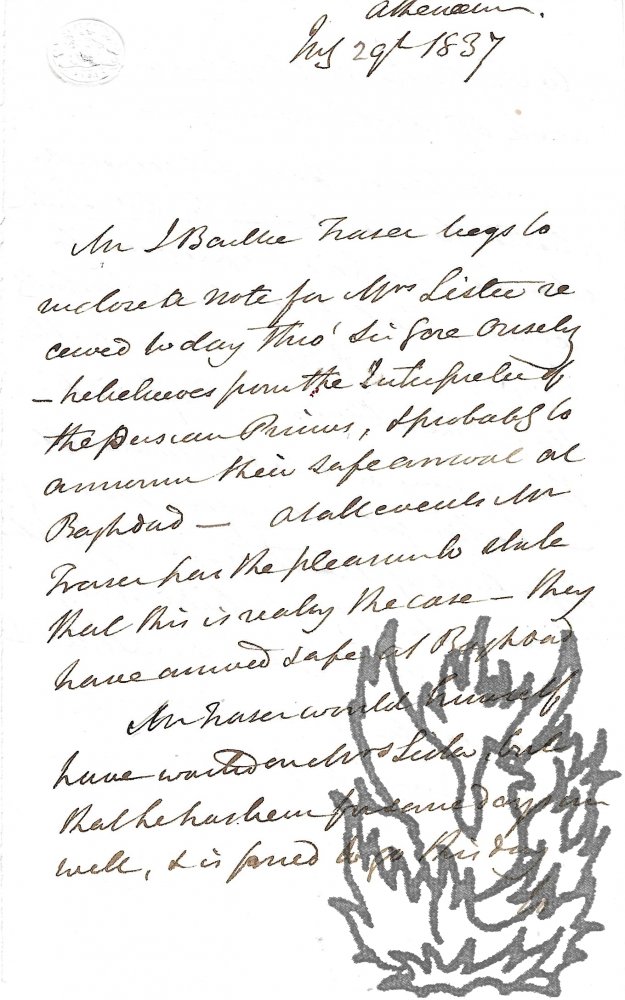 Athenaeum.
July 29th 1837
Mr J Baillie Fraser begs to
inclose a note for Mrs Lister re
ceived to day thro' Sir Gore Ousely
– he believes from the Interpreter of
the Persian Princes, & probably to
announce their safe arrival at
Baghdad – At all events Mr
Fraser has the pleasure to state
that this is really the case – they
have arrived safe at Baghdad
Mr Fraser would himself
have waited on Mrs Lister, but
that he has been for some days un
well, & is forced to go this day